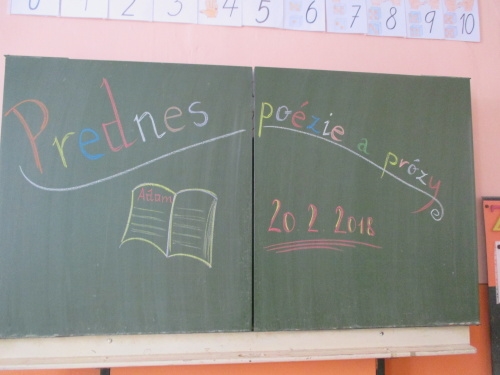 0 1 2 3 4 5 6 7 8 9 10
Prednes poézie a prózy
Čítam
20 2 2018